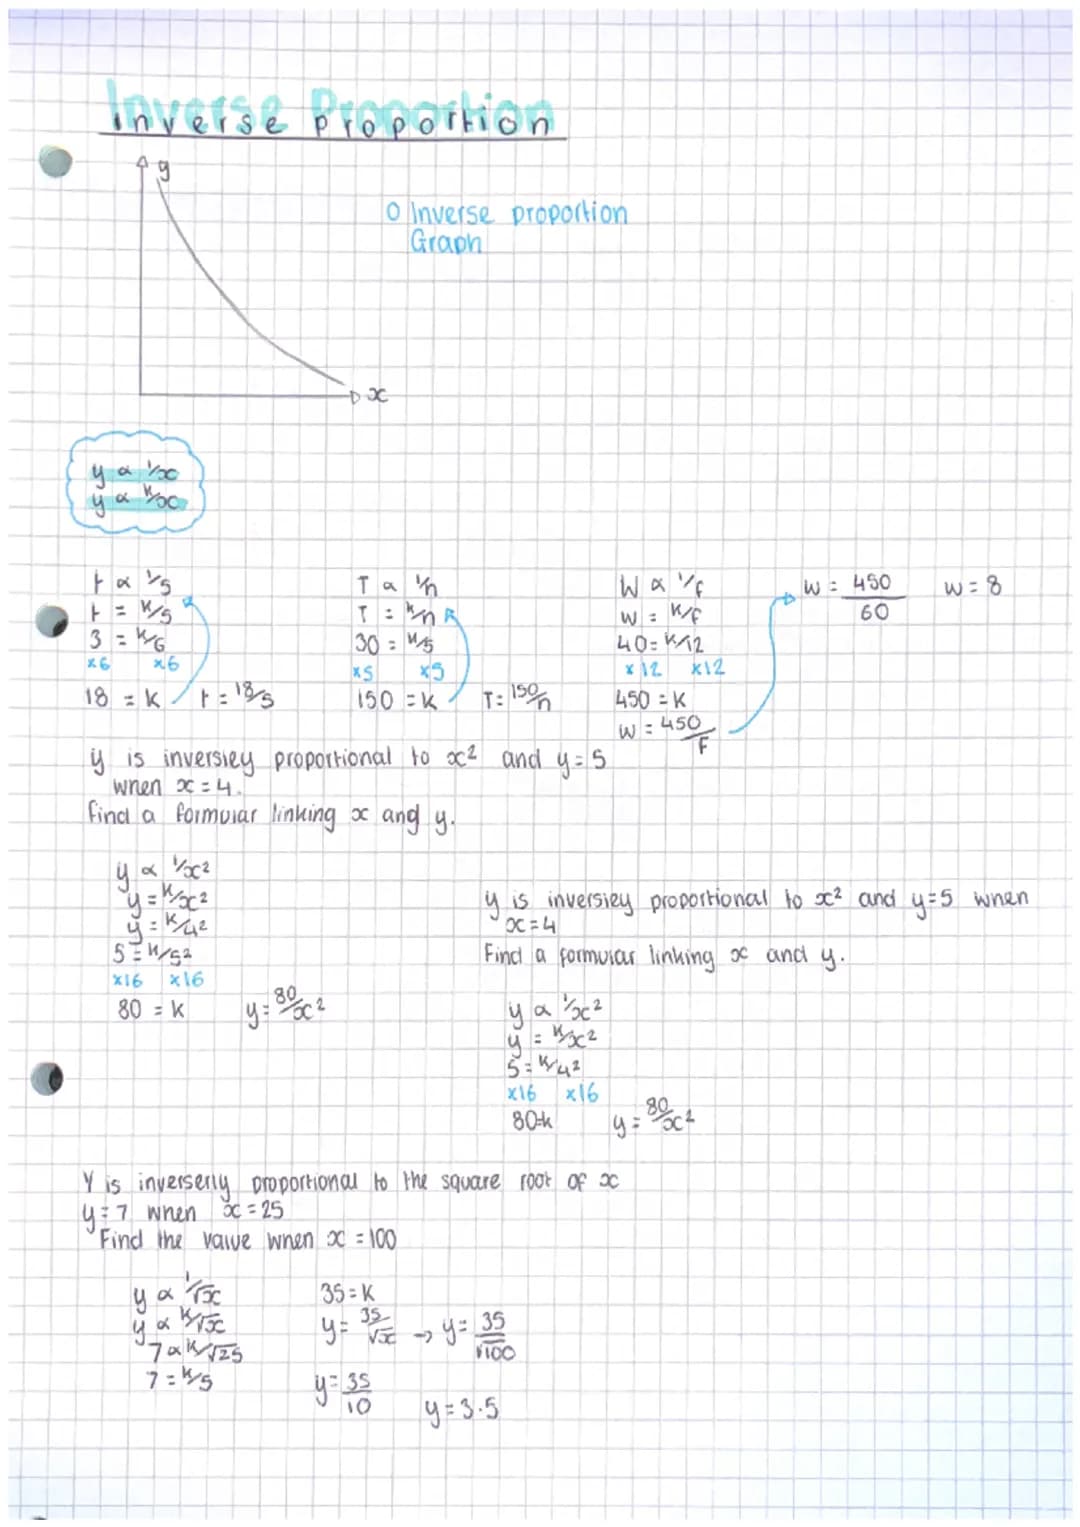 Inverse Proportion
y
O Inverse proportion
Graph
x
y α 1/x
y α k/x
t α 1/s
t = k/s
3 = k/6
x6 x6
18 = k t = 18/s
T α 1/n
T = k/n
30 = k/5
x5 x5
150 = k T = 150/n
W α 1/f
W = k/f
40 = k/12
x12 x12
450 = k
W = 450/F
W = 450/60 W = 8
y is inversley proportional to x² and y = 5
when x = 4.
find a formular linking x and y.
y α 1/x²
y = k/x²
y = k/4²
5 = k/5²
x16 x16
80 = k y = 80/x²
y is inversley proportional to x² and y=5 when
x=4
Find a formular linking x and y.
y α 1/x²
y = k/x²
5 = k/4²
x16 x16
80=k y = 80/x²
Y is inverserly proportional to the square root of x
y = 7 when x = 25
Find the value when x = 100
y α 1/√x
y α k/√x
7 α k/√25
7 = k/5
35 = k
y = 35/√x → y = 35/√100
y = 35/10
y = 3.5